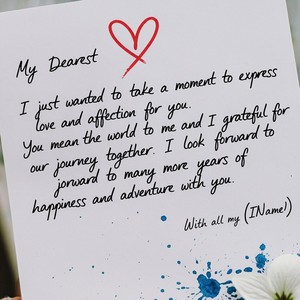 My Dearest
I just wanted to take a moment to express
love and affection for you.
You mean the world to me and I grateful for
our journey together. I look forward to
jorward to many more years of
happiness and adventure with you.
With all my (IName!)